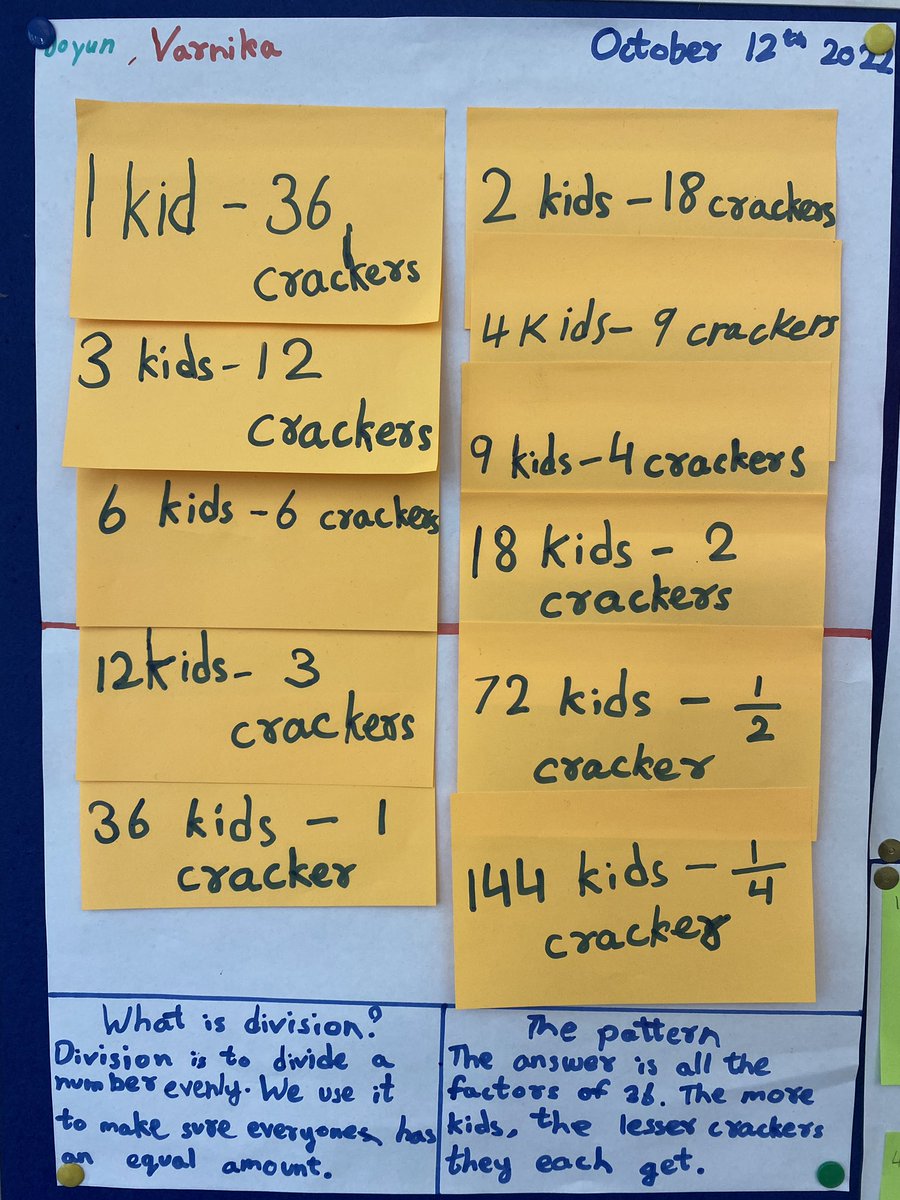 Doyun, Varnika
October 12th 2022
1 kid - 36
crackers
3 kids - 12
crackers
6 kids - 6 crackers
12 kids - 3
crackers
36 kids - 1
cracker
2 kids - 18 crackers
4 Kids - 9 crackers
9 kids - 4 crackers
18 kids - 2
crackers
72 kids - 1/2
cracker
144 kids - 1/4
cracker
What is division?
Division is to divide a
number evenly. We use it
to make sure everyones has
an equal amount.
The pattern
The answer is all the
factors of 36. The more
kids, the lesser crackers
they each get.